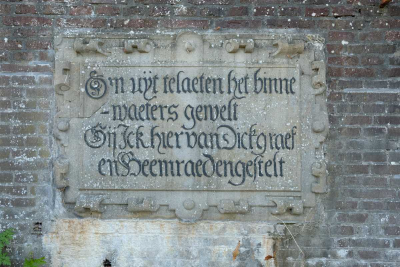 Om uyt telaeten het binne
-waeters gewelt
Bij Ick hier van Dickgraef
en Heemraeden gestelt